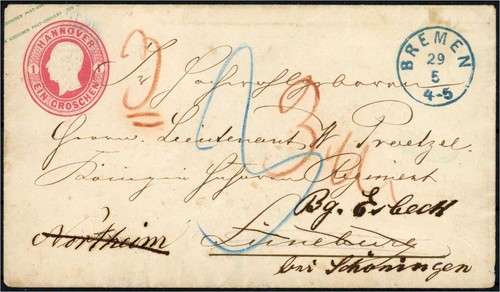 HANNOVER
1 1
EIN GROSCHEN
BREMEN
29
5
4-5
3
3
Sr Hochwohlgeboren
Herrn Lieutenant W Proetzel
Königin Husaren Regiment
Bg. Esbeck
Northeim
Lüneburg
bei Schöningen